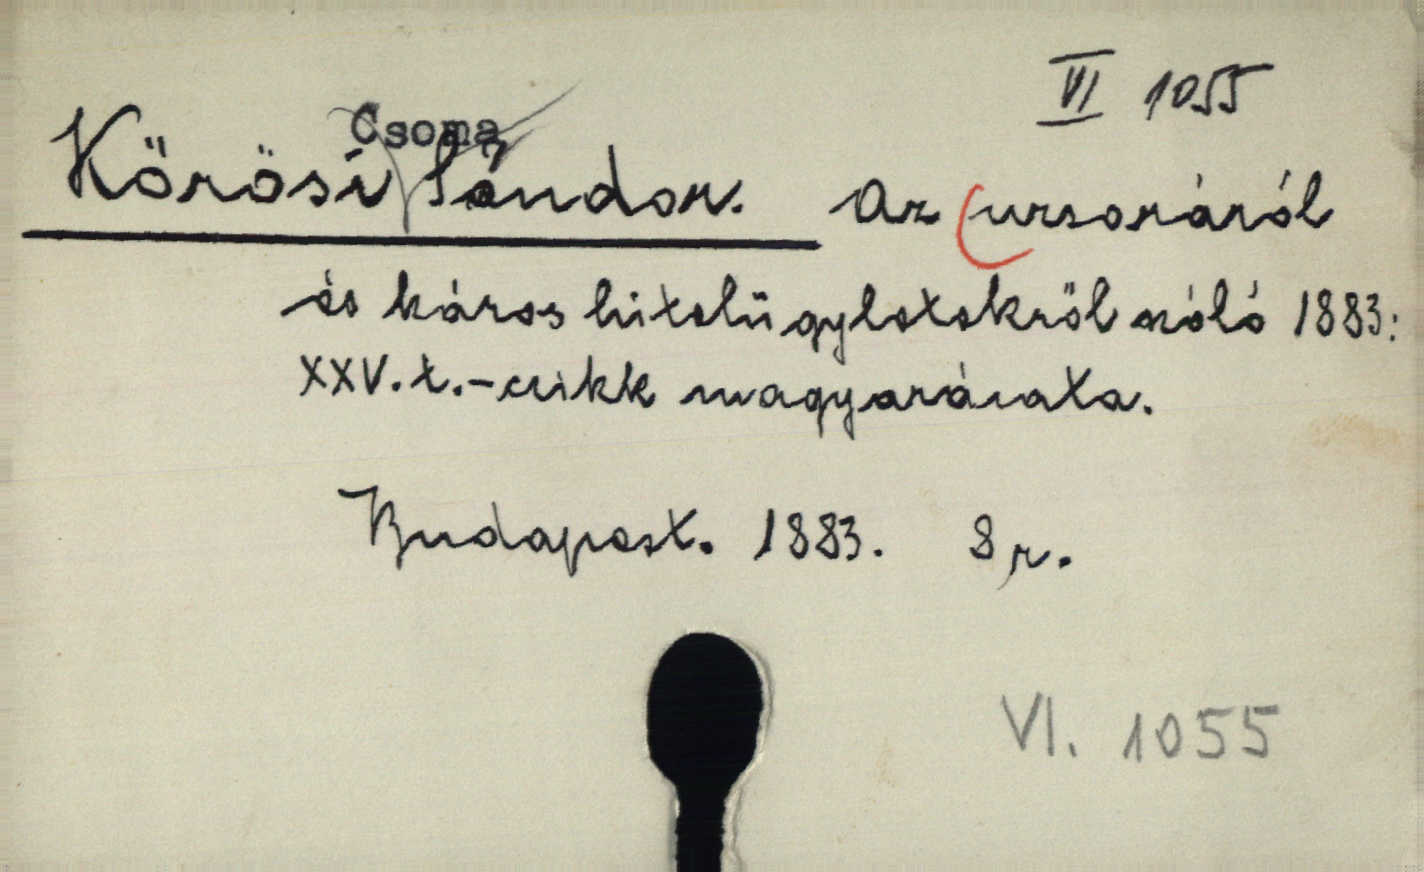 VI 1055
Csoma
Kőrösi Sándor. Az uzsoráról
és káros hitelügyletekről szóló 1883:
XXV. t.-czikk magyarázata.
Budapest. 1883. 8 r.
VI. 1055